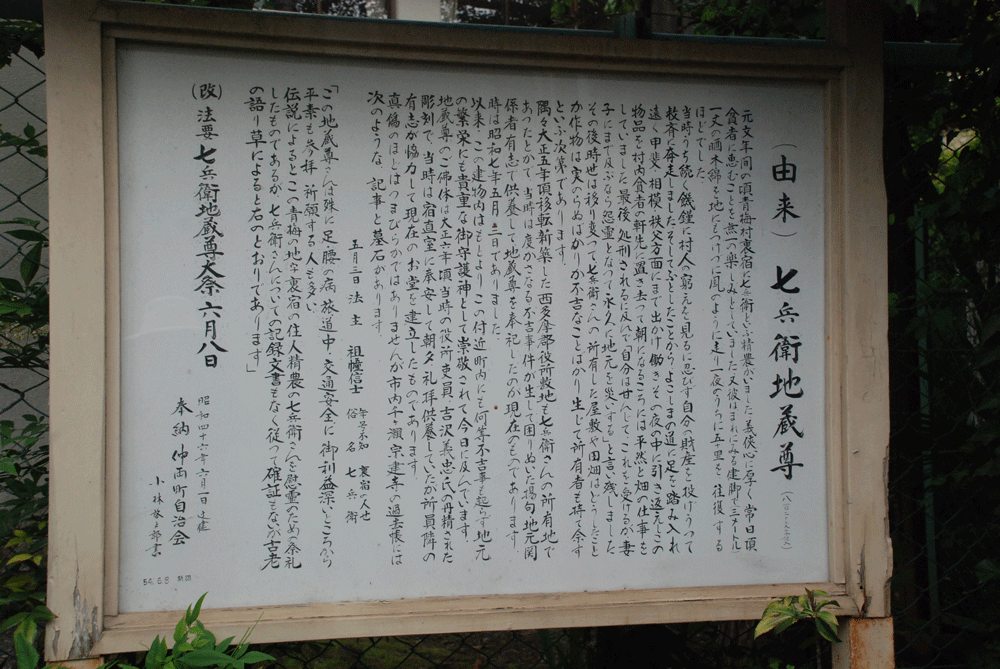 (由来) 七兵衛地蔵尊
元文年間の頃青梅村裏宿に七兵衛という精農がいました義侠心に厚く常日頃
貧者に恵むことを無一の楽しみとしていました又彼はまれにみる健脚で三メートル
一丈の晒木綿を地につけづに風のように走り一夜のうちに五十里を往復する
ほどでした
当時うち続く饑饉に村人の窮えを見るに忍びず自分の財産を投げうって
救済に奔走しましたそしてふとしたことからよこしまの道に足を踏み入れ
遠く甲斐 相模 秩父方面にまで出かけ働きその夜の中に引き返えしこの
物品を村内貧者の軒先に置き去って朝になるころには平然と畑の仕事を
していました最後処刑されるに及んで自分は甘んじてこれを受けるが妻
子にまで及ぶなら怨霊となって永久に地元を災いする」と言い残しました
その後時世は移り変って七兵衛さんの所有した屋敷や田畑はどうしたこと
か作物は実のらぬばかりか不吉なことばかり生じて所有者も捨て余す
といふ次第であります。
隅々大正五年頃移転新築した西多摩郡役所敷地も七兵衛さんの所有地で
あったとかで、当時は度かさなる不吉事件が生じて困りぬいた揚句地元関
係者有志で供養して地蔵尊を奉祀したのが現在のものであります。
時は昭和七年五月三日でありました。
以来・この建物内はもとより この付近町内にも何等不吉事も起らず地元
の繁栄にも貴重な御守護神として崇敬されて今日に及んでいます
地蔵尊のご佛体は大正六年頃当時の役所吏員吉沢義忠氏の丹精された
彫刻で、当時は宿直室に奉安して朝夕礼拝供養していたが所員隣の
有志が協力して現在のお堂を建立したものであります。
真偽のほどはつまびらかではありませんが市内千ヶ瀬宗建寺の過去帳には
次のような 記事と墓石があります
五月三日 法 主 祖幢信士 年号不知 裏宿ノ人也
俗 名 七 兵 衛
「この地蔵尊さんは殊に足腰の病 旅道中 交通安全に御利益深いところから
平素も参拝 祈願する人も多い
伝説によるとこの青梅の地に裏宿の住人精農の七兵衛さんを慰霊のための奉礼
したものであるが 七兵衛さんについての記録文書もなく従って確証もないが古老
の語り草によると右のとおりであります」
(改) 法要 七兵衛地蔵尊大祭 六月八日
昭和四十六年六月一日建
奉納 仲町自治会
54.6.8